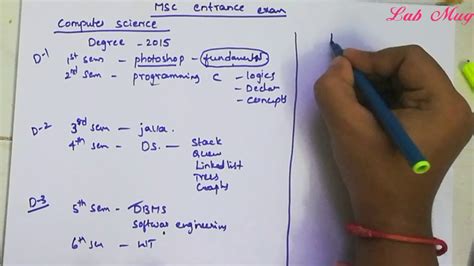 Lab Mug
MSC entrance exam
Computer science
Degree - 2015
D-1
1st sem - photoshop - fundamental
2nd sem - programming C - logics
- Declar
- concepts
D-2
3rd sem - java.
4th sem - DS. - Stack
Queue
Linked list
Trees
Graphs
D-3
5th sem - DBMS
Software engineering
6th sem - WT